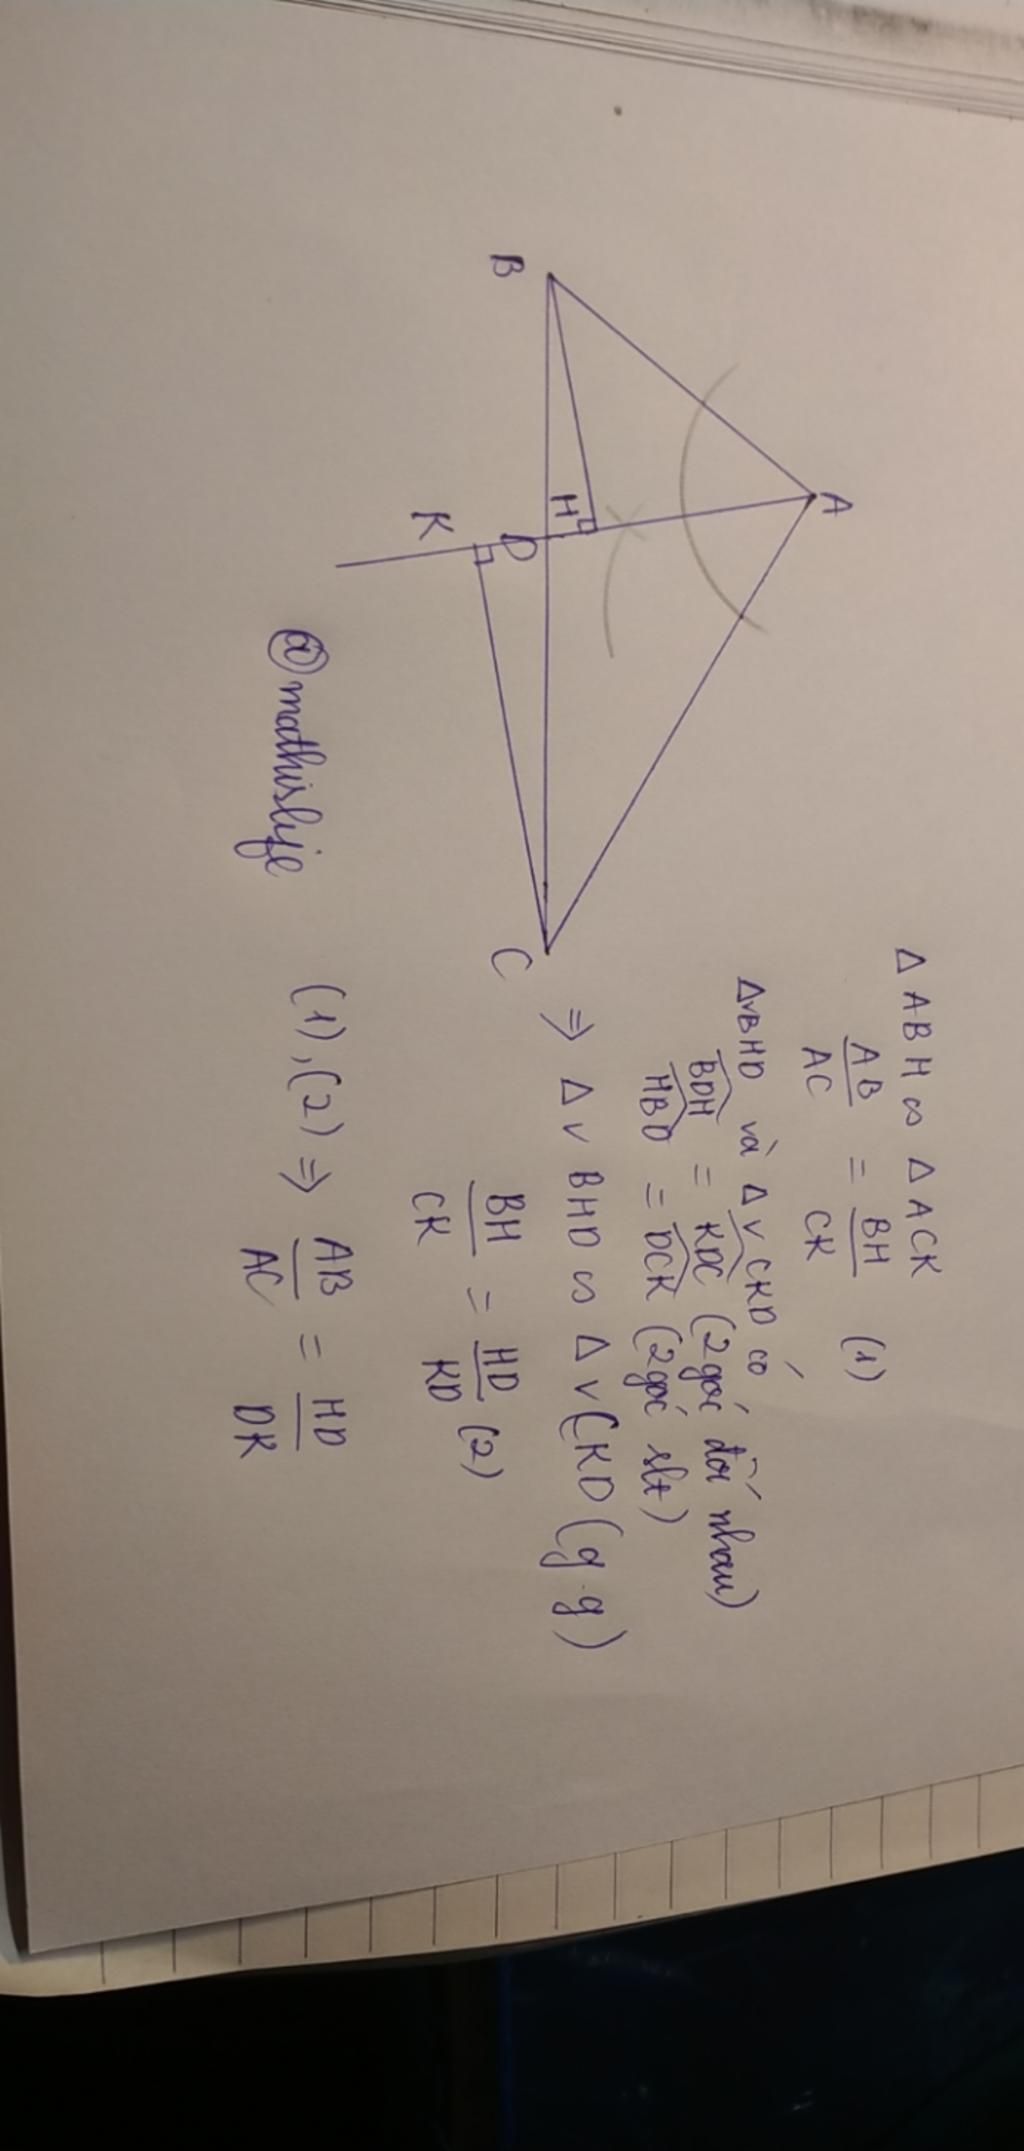 A
B
H
D
K
C
@mathislife
Δ ABH ∽ Δ ACK
AB/AC = BH/CK (1)
ΔvBHD và ΔvCKD có
BDH = KDC (2 góc đối nhau)
HBD = DCK (2 góc slt)
⇒ Δv BHD ∽ Δv CKD (g.g)
BH/CK = HD/KD (2)
(1),(2) ⇒ AB/AC = HD/DK